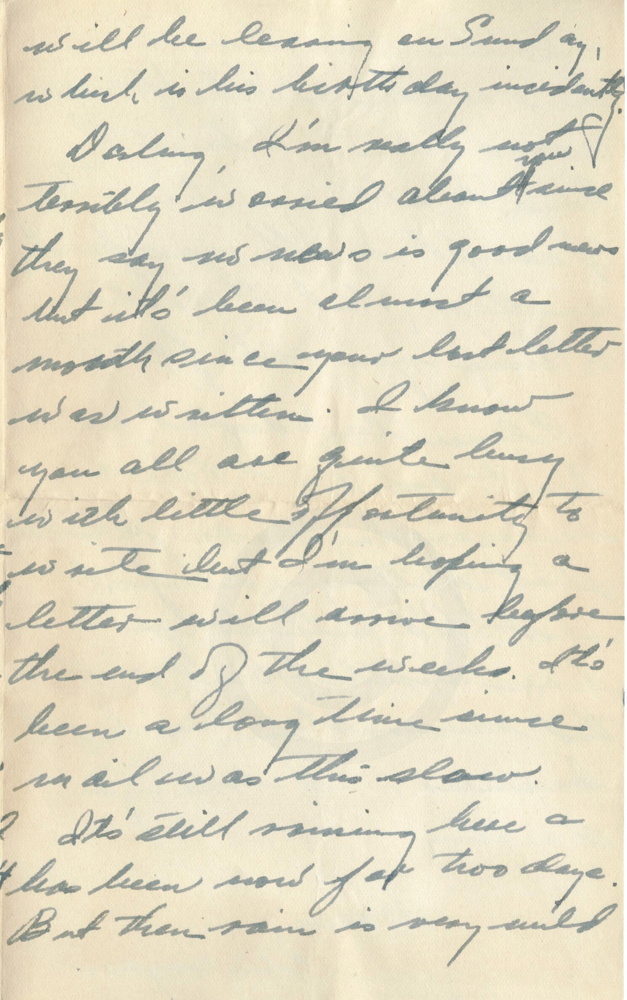 will be leaving on Sunday,
which is his birthday incidently.
Darling, I'm really not
terribly worried about you since
they say no news is good news
but it's been almost a
month since your last letter
was written. I know
you all are quite busy
with little opportunity to
write but I'm hoping a
letter will arrive before
the end of the week. It's
been a long time since
mail was this slow.
It's still raining here &
has been now for two days.
But then rain is very mild